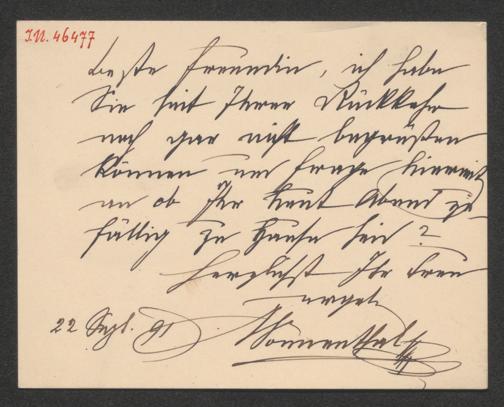 I.N. 46477
beste Freundin, ich habe
Sie seit Ihrer Rückkehr
noch gar nicht begrüßen
können und frage hiermit
an ob Ihr heut Abend zu-
fällig zu Hause seid?
Herzlichst Ihr treu
ergeb.
22 Sept. 91 Sonnenthal